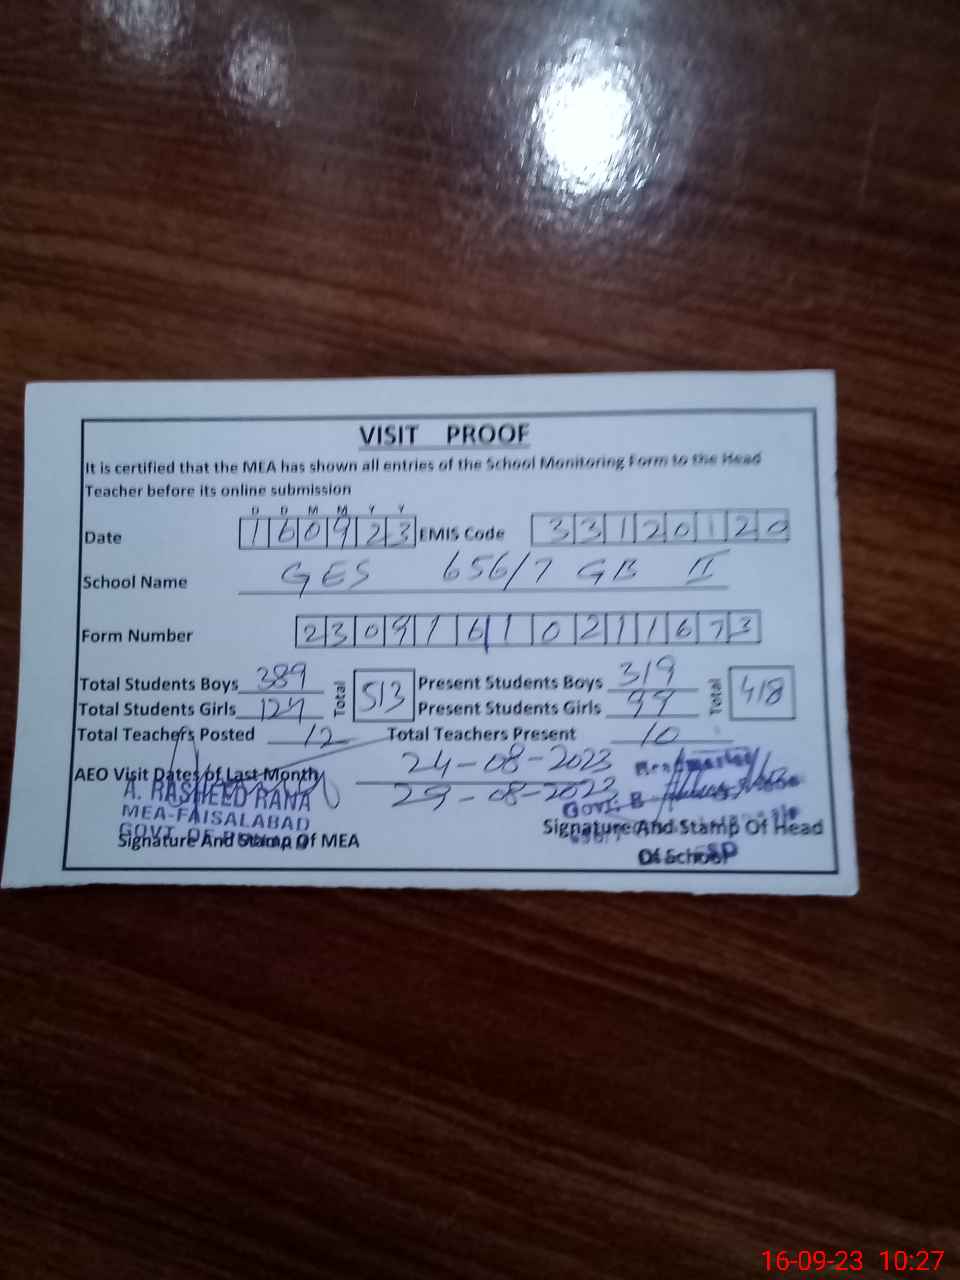 VISIT PROOF
It is certified that the MEA has shown all entries of the School Monitoring Form to the Head
Teacher before its online submission
D D M M Y Y
Date 160923 EMIS Code 33120120
School Name GES 656/7 GB II
Form Number 23091610211673
Total Students Boys 389 Total 513 Present Students Boys 319 Total 418
Total Students Girls 124 Present Students Girls 99
Total Teachers Posted 12 Total Teachers Present 10
AEO Visit Dates of Last Month 24-08-2023
29-08-2023
A. RASHEED RANA
MEA-FAISALABAD
GOVT. OF
Signature And Stamp Of MEA
Headmaster
Govt.
Signature And Stamp Of Head
Of School
16-09-23 10:27